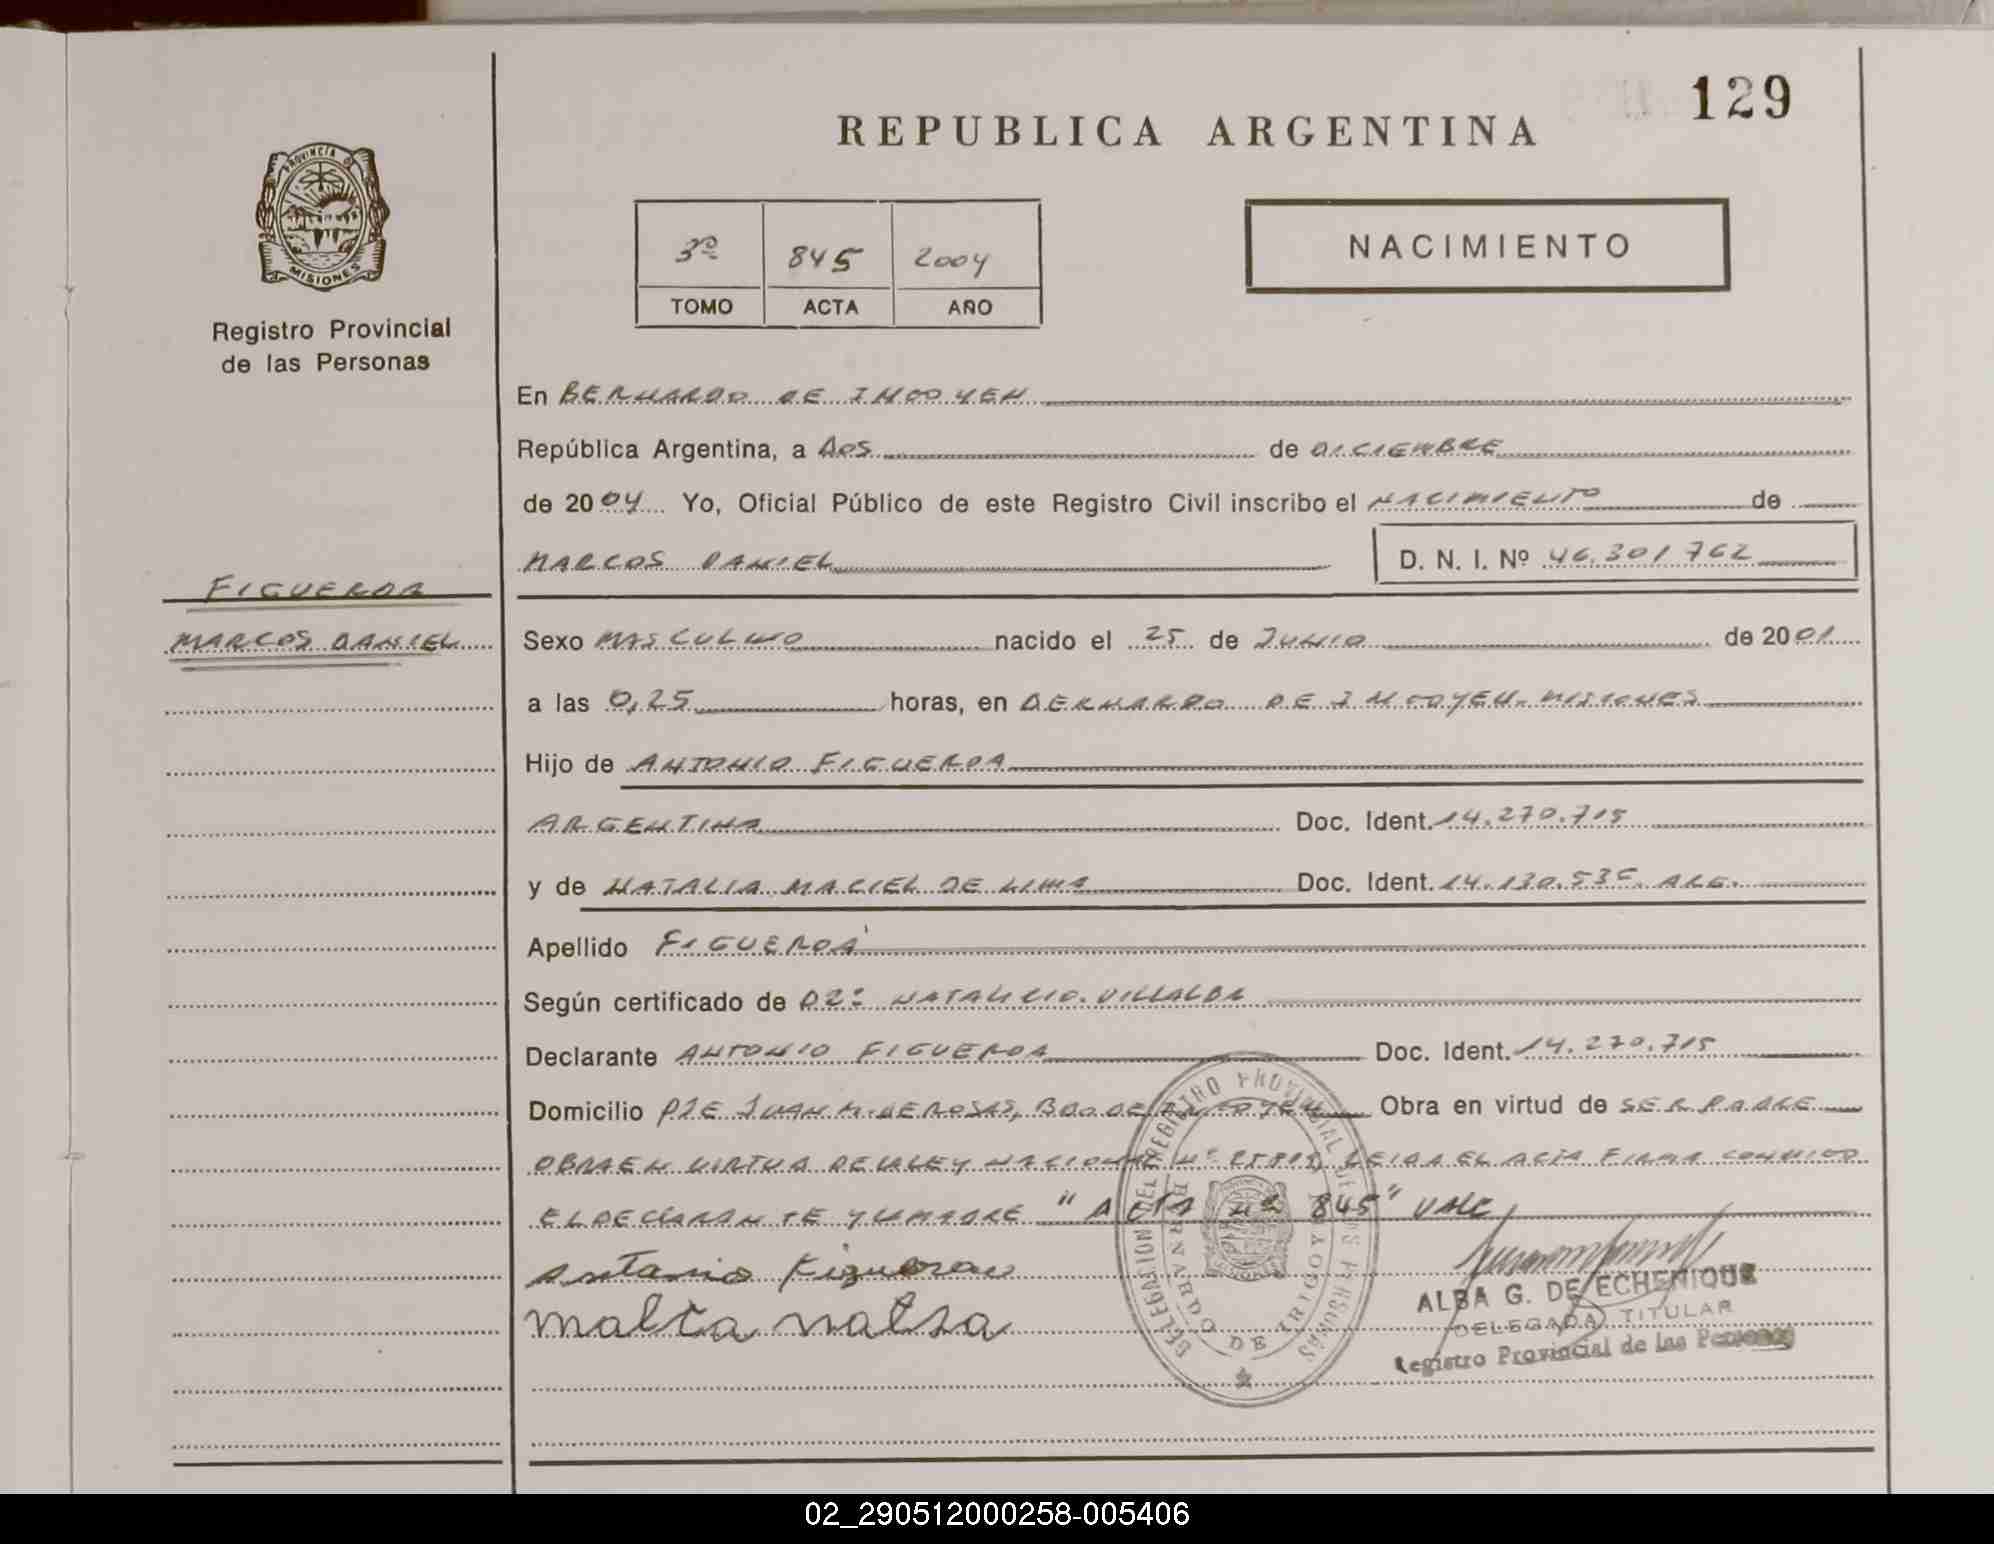 129
REPUBLICA ARGENTINA
PROVINCIA DE MISIONES
Registro Provincial
de las Personas
3º 845 2004
TOMO ACTA AÑO
NACIMIENTO
En BERNARDO DE IRIGOYEN
República Argentina, a DOS de DICIEMBRE
de 2004 Yo, Oficial Público de este Registro Civil inscribo el NACIMIENTO de
MARCOS DANIEL D. N. I. Nº 46.301.762
FIGUEROA
MARCOS DANIEL
Sexo MASCULINO nacido el 25 de JUNIO de 2001
a las 0,25 horas, en BERNARDO DE IRIGOYEN. MISIONES
Hijo de ANTONIO FIGUEROA
ARGENTINA Doc. Ident. 14.270.715
y de NATALIA MACIEL DE LIMA Doc. Ident. 14.130.536. ARG.
Apellido FIGUEROA
Según certificado de DR: NATALICIO. VILLALBA
Declarante ANTONIO FIGUEROA Doc. Ident. 14.270.715
Domicilio PJE JUAN M. DE ROSAS, BDO DE IRIGOYEN Obra en virtud de SER PADRE
OBRA EN VIRTUD DE LA LEY NACIONAL Nº 25819, LEIDA EL ACTA FIRMA CONMIGO
EL DECLARANTE Y LA MADRE "ACTA Nº 845" VALE
Antonio Figueroa
malta natsa
DELEGACION DEL REGISTRO PROVINCIAL DE LAS PERSONAS
BERNARDO DE IRIGOYEN
ALBA G. DE ECHENIQUE
DELEGADA TITULAR
Registro Provincial de las Personas
02_290512000258-005406